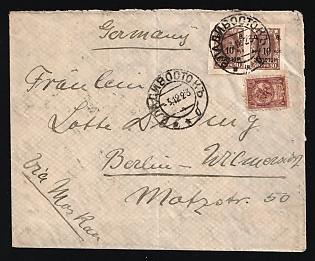 Germany
ВЛАДИВОСТОКЪ
10
10
Fräulein
ВЛАДИВОСТОКЪ
5.12.23
Lotte
Berlin - Wilmersd.
Motzstr. 50
via Moskau